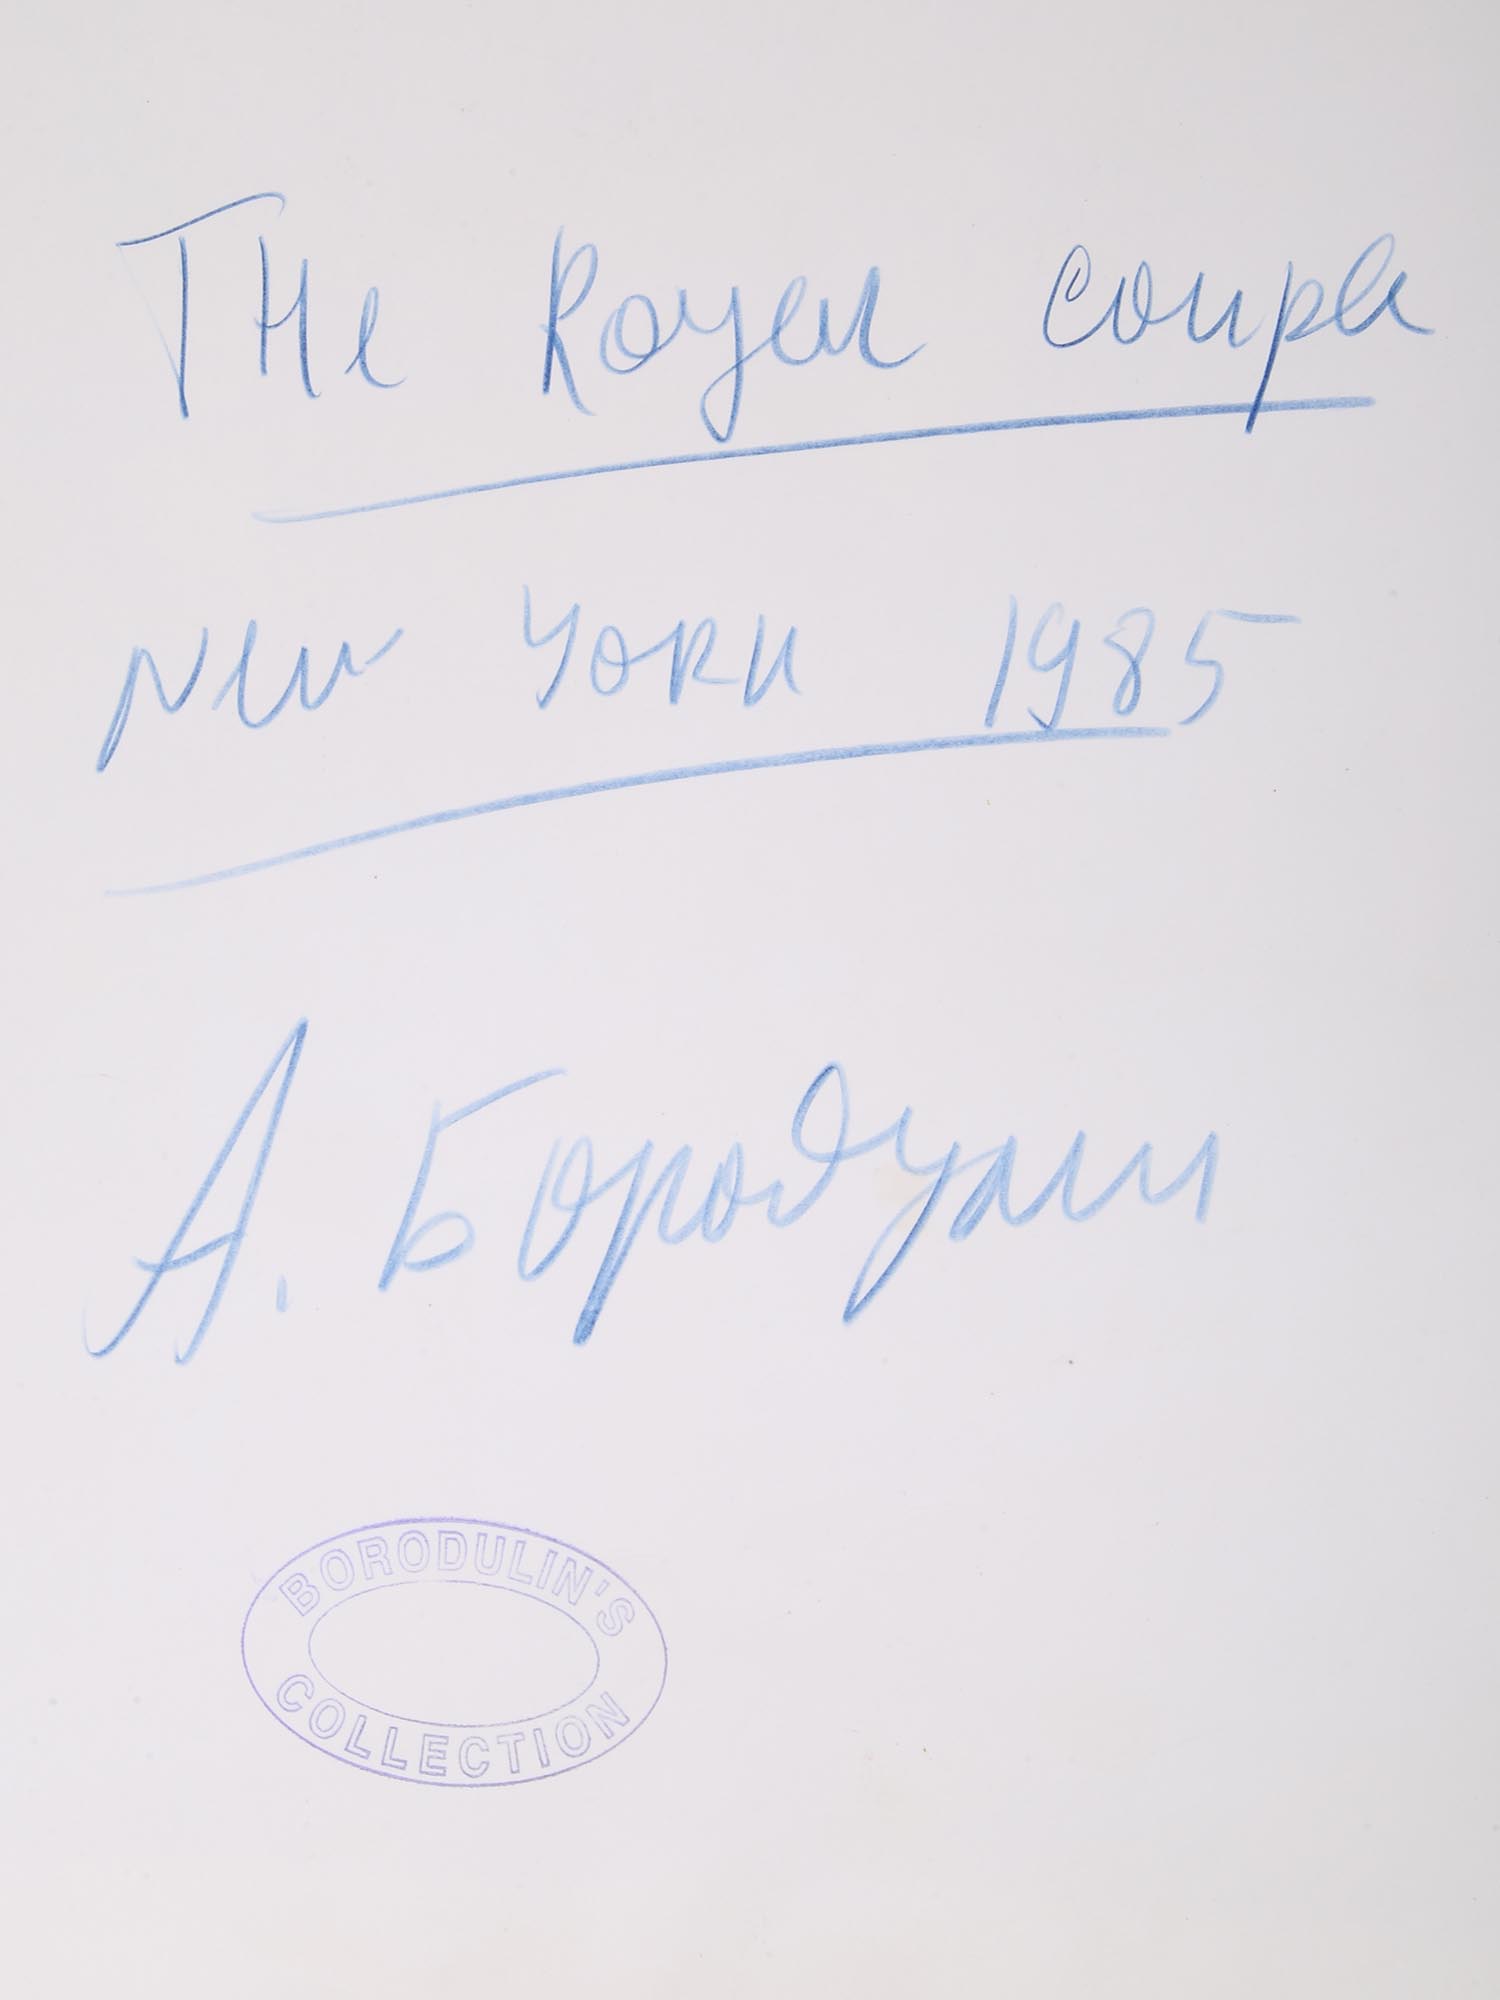 THe Royal couple
New York 1985
А. Бородулин
BORODULIN'S
COLLECTION